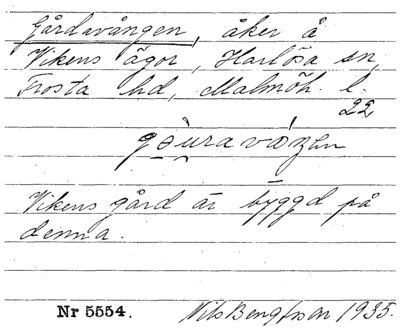 Gårdavången, åker å
Vikens ägor, Harlösa sn,
Frosta hd, Malmöh. l.
22
Vikens gård är byggd på
denna.
Nr 5554. Nils Bengtsson 1935.